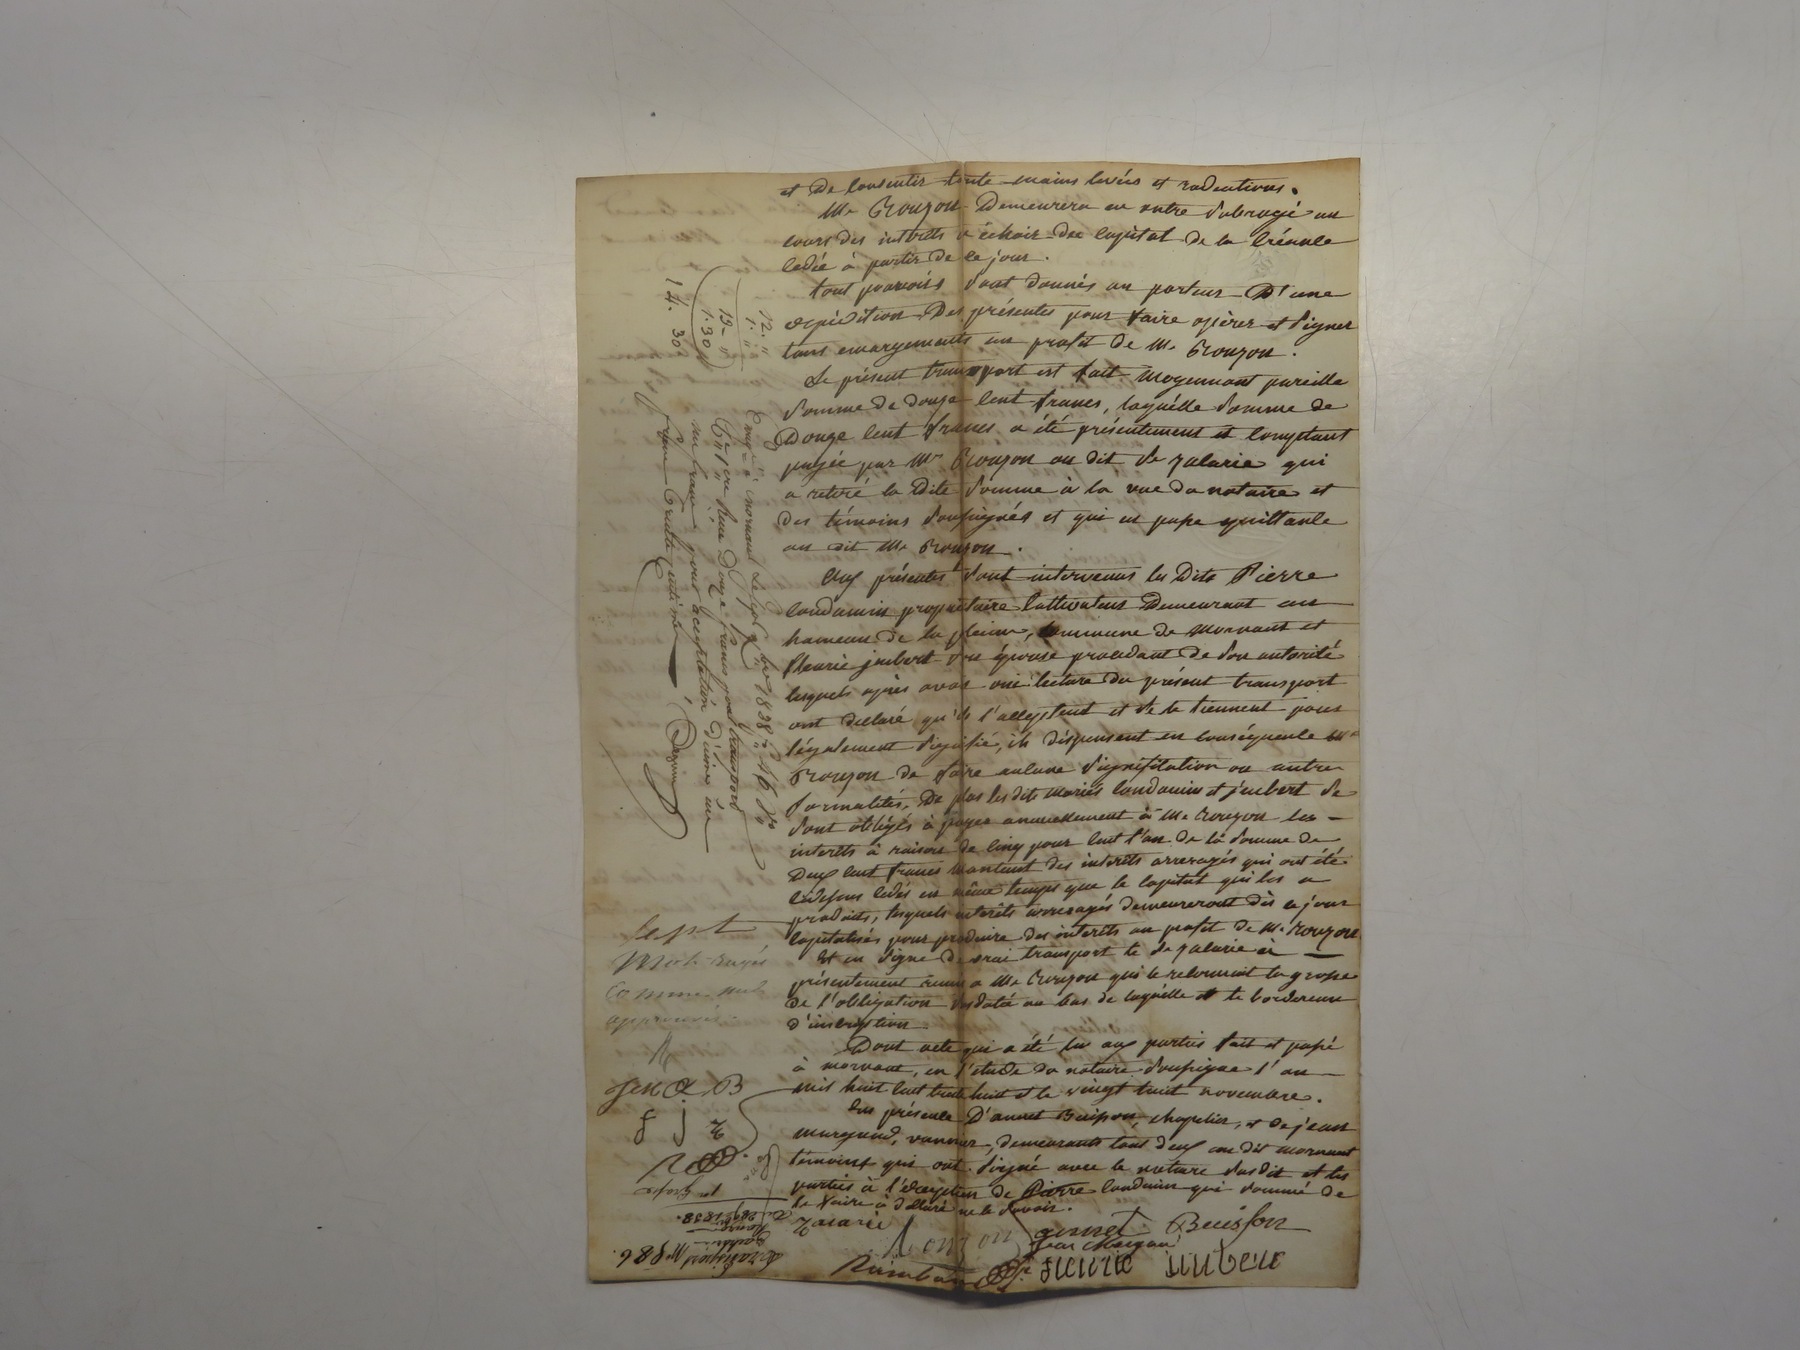 et de Consentir toute mains levées et radiations.
Mr Crouzon Demeurera en outre Subrogé au
cours des intérêts a échoir du Capital de la Créance
Cédée à partir de ce jour.
tout pouvoirs sont donnés au porteur D'une
expédition Des présentes pour faire opérer et signer
tous emargements au profit de Mr Crouzon.
Le présent transport est fait moyennant pareille
somme de douze Cent francs, laquelle somme de
Douze Cent francs a été présentement et Comptant
payée par Mr Crouzon au dit Sr zacarie qui
a retiré la dite somme à la vue du notaire et
des témoins soussignés et qui en passe quittance
au dit Mr Crouzon.
Aux présentes sont intervenus les Dits Pierre
Condamin propriétaire Cultivateur Demeurant au
hameau de la pleine, Commune de Mornant et
fleurie jubert son épouse procédant de son autorité
lesquels après avoir oui lecture du présent transport
ont déclaré qu'ils l'acceptent et se le tiennent pour
légalement signifié, ils dispensent en conséquence Mr
Crouzon de faire aucune signification ou autre
formalités. De plus les dits mariés Condamin et jubert se
sont obligés à payer annuellement à Mr Crouzon les
interets à raison de Cinq pour Cent l'an de la somme de
Deux Cent francs montant des intérêts arreragés qui ont été
Cidessus Cédés en même temps que le Capital qui les a
produits, lesquels intérêts arreragés demeureront dès ce jour
Capitalisés pour produire des interets au profit de Mr Crouzon
Et en signe de vrai transport le Sr zacarie à
présentement remis a Mr Crouzon qui le reconnait la grosse
de l'obligation susdatée au bas de laquelle est le bordereau
d'inscription
Dont acte qui a été lu aux parties fait et passé
à mornant, en l'etude du notaire soussigné l'an
mil huit Cent trente huit et le vingt huit novembre.
En présence D'annet Buisson, chapelier, et de jean
, demeurants tous deux au dit mornant
témoins qui ont signé avec le notaire susdit et les
parties à l'exception de Pierre Condamin qui sommé de
le faire a déclaré ne le savoir.
Zacarie
annet Buisson
fleurie jubert
Sept
Mots rayés
Comme nuls
approuvés
12. "
1. "
13 "
1.30
14. 30
Enregé à mornant Le
1838
Reçu Douze francs pour transport
un franc pour acceptation